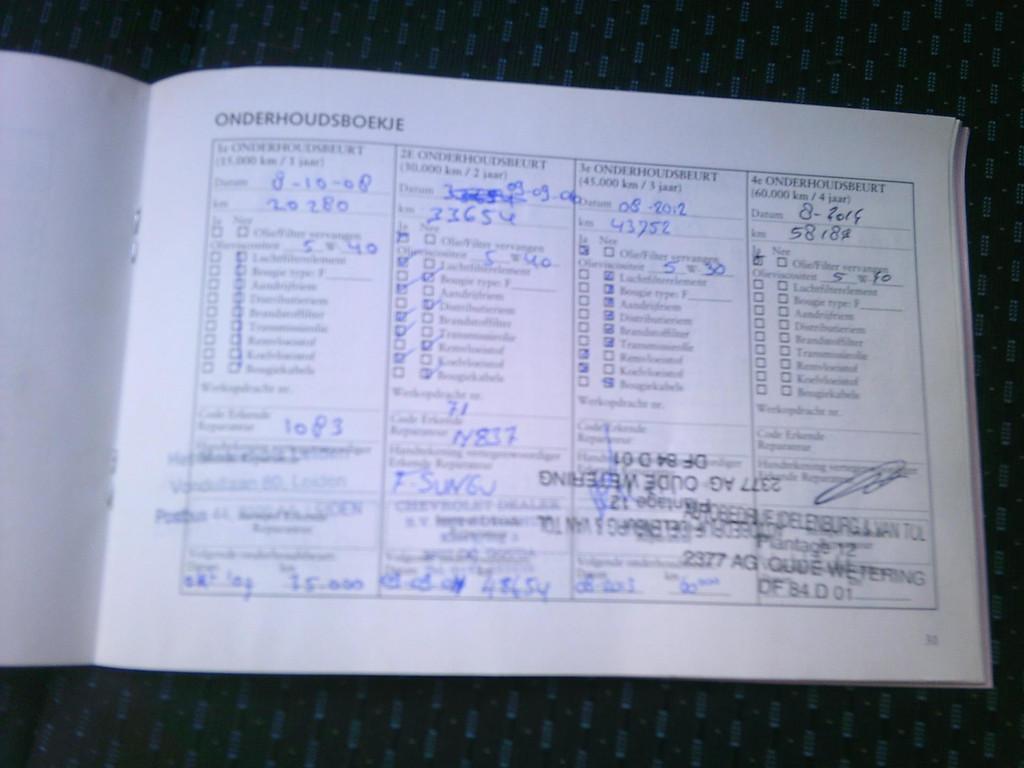 ONDERHOUDSBOEKJE
1e ONDERHOUDSBEURT
(15.000 km / 1 jaar)
Datum 8-10-08
km 20280
Ja Nee
Olie/Filter vervangen
Olieviscositeit 5 W 40
Luchtfilterelement
Bougie type: F
Aandrijfriem
Distributieriem
Brandstoffilter
Transmissieolie
Remvloeistof
Koelvloeistof
Bougiekabels
Werkopdracht nr.
Code Erkende
Reparateur 1083
Vondellaan 80, Leiden
Postbus 44, LEIDEN
Reparateur
Volgende onderhoudsbeurt
Datum km
okt 09 35.000
2E ONDERHOUDSBEURT
(30.000 km / 2 jaar)
Datum 09-09
km 33654
Ja Nee
Olie/Filter vervangen
Olieviscositeit 5 W 40
Luchtfilterelement
Bougie type: F
Aandrijfriem
Distributieriem
Brandstoffilter
Transmissieolie
Remvloeistof
Koelvloeistof
Bougiekabels
Werkopdracht nr.
71
Code Erkende
Reparateur N837
Handtekening vertegenwoordiger
Erkende Reparateur
F-SUNGU
CHEVROLET DEALER
B.V.
48654
3e ONDERHOUDSBEURT
(45.000 km / 3 jaar)
Datum 08-2012
km 43752
Ja Nee
Olie/Filter vervangen
Olieviscositeit 5 W 30
Luchtfilterelement
Bougie type: F
Aandrijfriem
Distributieriem
Brandstoffilter
Transmissieolie
Remvloeistof
Koelvloeistof
Bougiekabels
Werkopdracht nr.
Code Erkende
Reparateur
DF 84 D 01
2377 AG OUDE WETERING
Plantage 12
IDELENBURG & VAN TOL
Volgende onderhoudsbeurt
08 2013 km 60000
4e ONDERHOUDSBEURT
(60.000 km / 4 jaar)
Datum 8-2014
km
Ja Nee
Olie/Filter vervangen
Olieviscositeit 5 W
Luchtfilterelement
Bougie type: F
Aandrijfriem
Distributieriem
Brandstoffilter
Transmissieolie
Remvloeistof
Koelvloeistof
Bougiekabels
Werkopdracht nr.
Code Erkende
Reparateur
Handtekening vertegenwoordiger
Erkende Reparateur
IDELENBURG & VAN TOL
Plantage 12
2377 AG OUDE WETERING
DF 84 D 01
30